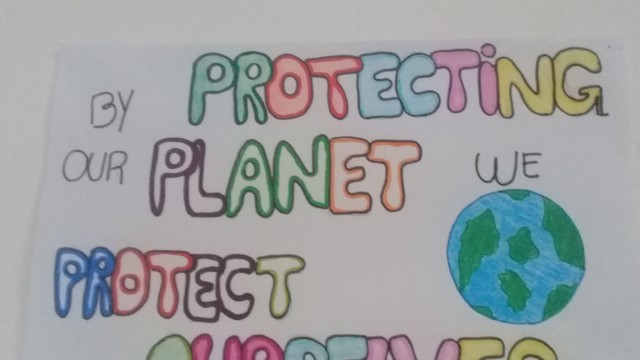 BY PROTECTiNG
OUR PLANET WE
PROTECT
OURSELVES